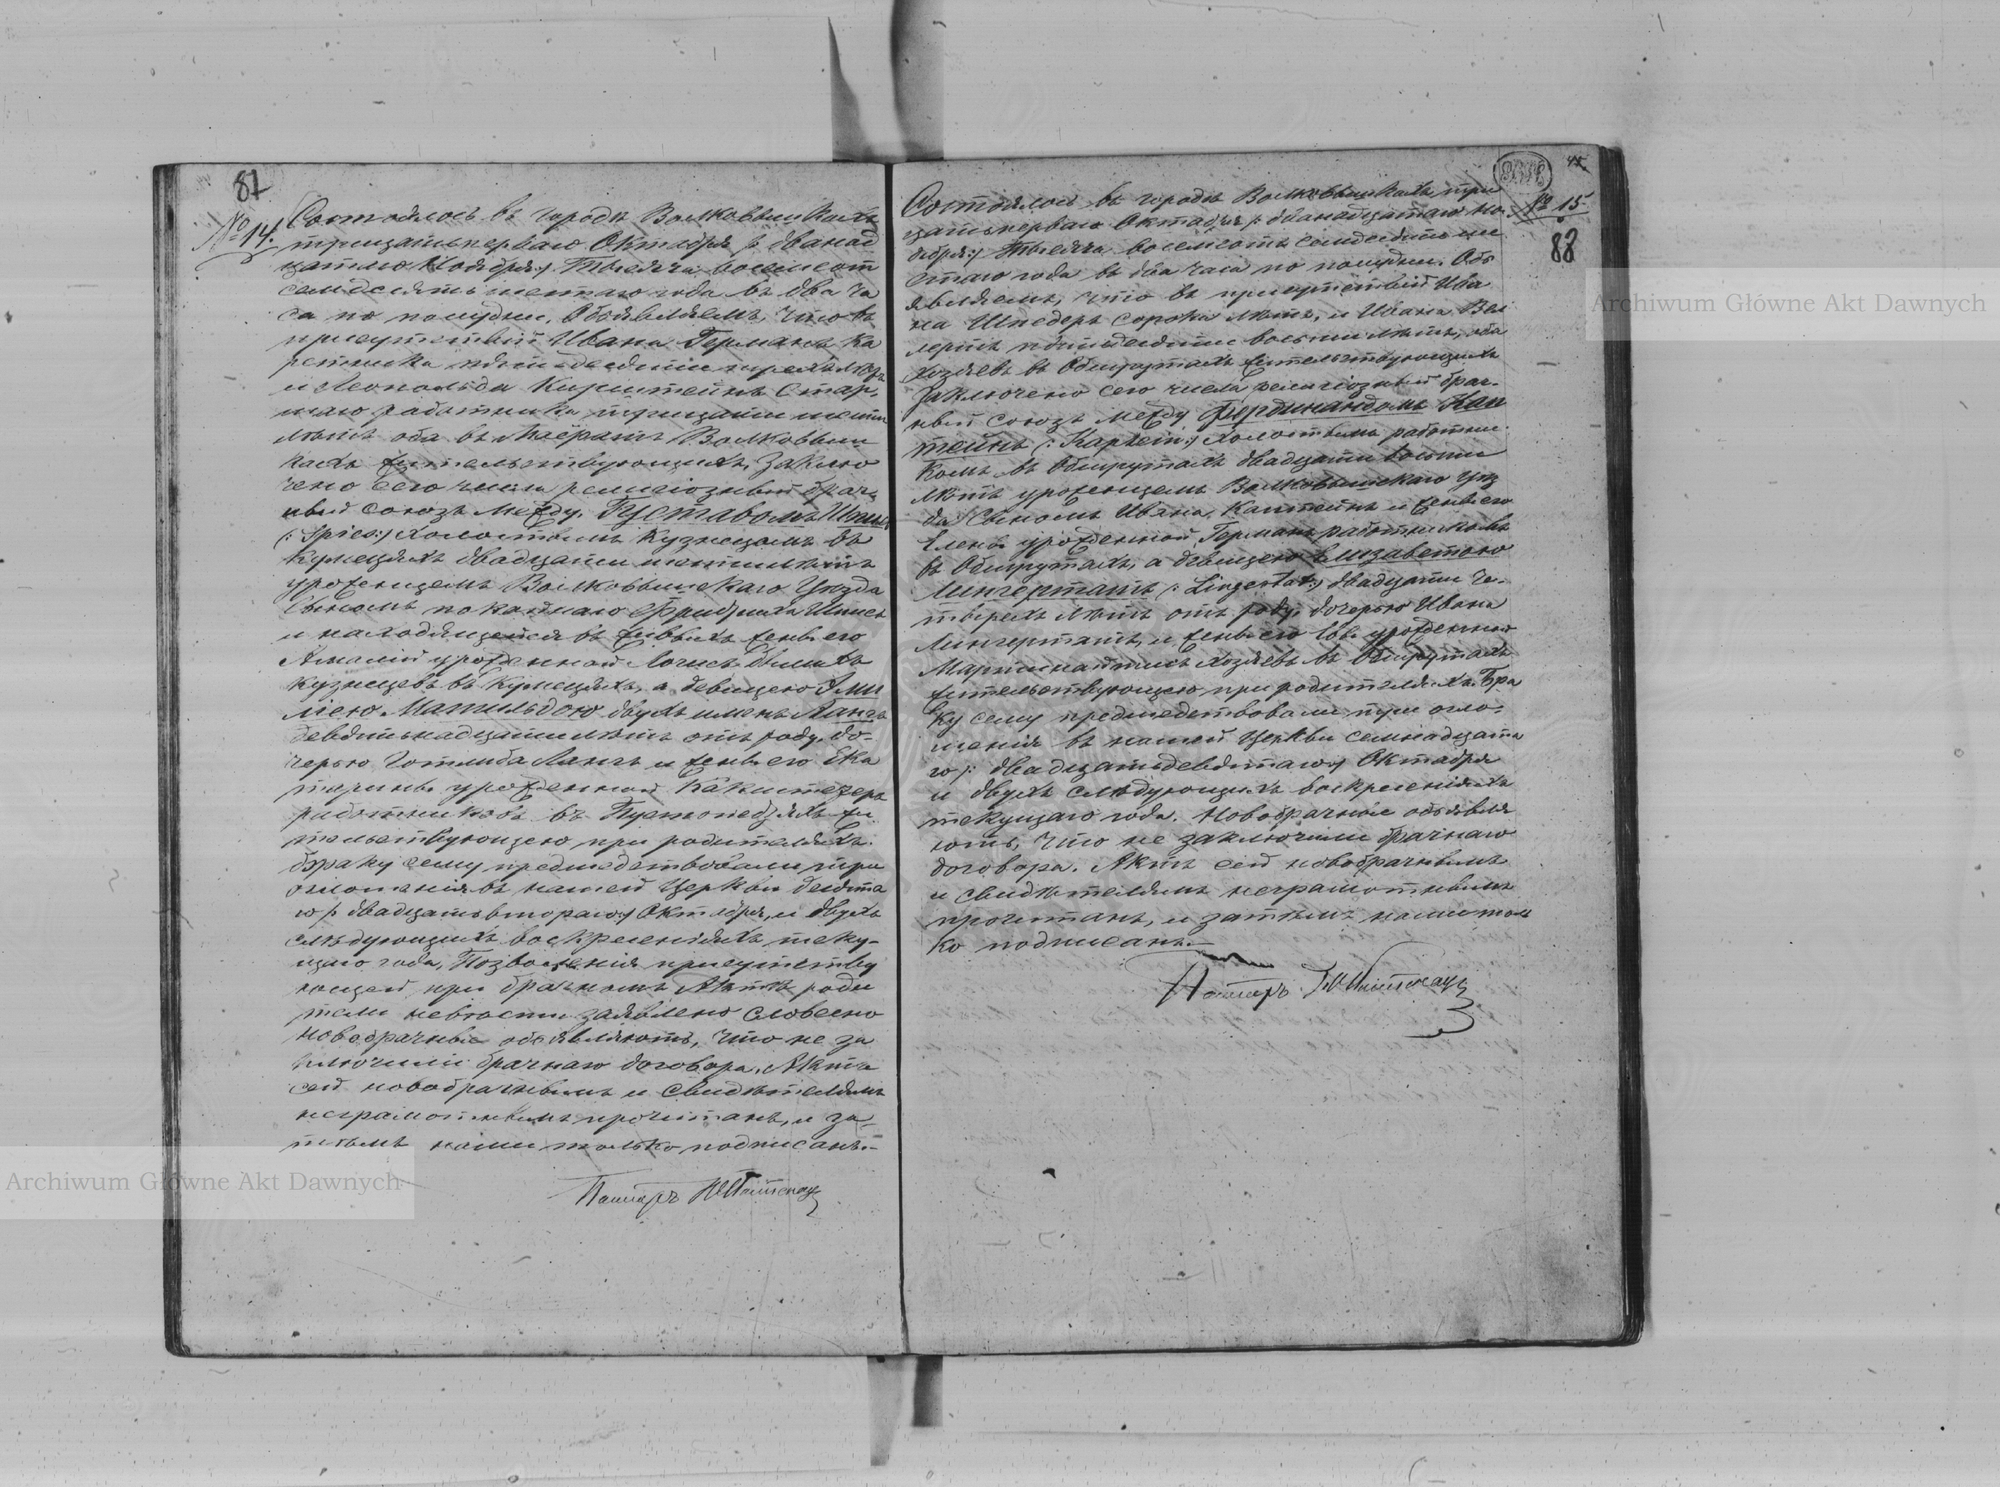 87
№ 14.
Состоялось въ городѣ Волковышкахъ
тридцатьперваго Октября /: двѣнад
цатаго Ноября:/ Тысяча восемсотъ
семдесятъ шестаго года въ два ча
са по полудни. Объявляемъ, что въ
присутствіи Ивана Германъ ка
лѣтъ
и Леопольда Кирштейнъ стар
шаго работника тридцати шести
лѣтъ оба въ Волковыш
кахъ жительствующихъ, заклю
чено сего числа религіозный брач
ный союзъ между Густавомъ Шписъ
(: Spies:) холостымъ кузнецомъ въ
двадцати шести лѣтъ
уроженцемъ Волковышскаго Уѣзда
Сыномъ покойнаго Фридриха Шписъ
и находящейся въ живыхъ жены его
Амаліи урожденной
кузнецовъ въ а девицею Эми
ліею Матильдою двухъ именъ Лангъ
девятьнадцати лѣтъ отъ роду, до-
черью Готлиба Лангъ и жены его Ека
терины урожденной
работниковъ въ жи
тельствующею при родителяхъ.
браку сему предшедствовали три
оглошенія въ нашей Церкви девята
го /: двадцатьвтораго:/ Октября, и двухъ
слѣдующихъ воскресеніяхъ теку-
щаго года, Позволенія присутству
ющей при брачномъ Актѣ роди
тели невѣсты заявлено словесно
новобрачные объявляютъ, что не за
ключили брачнаго договора. Актъ
сей новобрачнымъ и свидѣтелямъ
неграмотнымъ прочитанъ, и за-
тѣмъ нами только подписанъ.-
Пасторъ
№ 15
88
Состоялось въ городѣ Волковышкахъ три
цатьперваго Октября /: двѣнадцатаго Но-
ября:/ Тысяча восемсотъ семдесятъ ше
стаго года въ два часа по полудни. Объ
являемъ, что въ присутствіи Ива
на Шнедеръ сорока лѣтъ, и Ивана Вел
лертъ пятьдесяти восьми лѣтъ, оба
хозяевъ въ Обшрутахъ жительствующихъ
Заключено сего числа религіозный брач-
ный союзъ между Фердинандомъ Кап
тейнъ (: Kaptein:) холостымъ работни-
комъ въ Обшрутахъ двадцати восьми
лѣтъ уроженцемъ Волковышскаго Уѣз
да Сыномъ Ивана Каптейнъ и жены его
Елены урожденной Германъ работниковъ
въ Обшрутахъ, а девицею Елизаветою
Лингертатъ (: Lingertat:) двадцати че-
тырехъ лѣтъ отъ роду, дочерью Ивана
Лингертатъ, и жены его Евы урожденной
Мартинайтисъ хозяевъ въ Обшрутахъ
жительствующею при родителяхъ. Бра
ку сему предшедствовали три огло-
шенія въ нашей Церкви семнадцата
го /: двадцатьдевятаго:/ Октября
и двухъ слѣдующихъ воскресеніяхъ
текущаго года. Новобрачные объявля
ютъ, что не заключили брачнаго
договора. Актъ сей новобрачнымъ
и свидѣтелямъ неграмотнымъ
прочитанъ, и затѣмъ нами толь
ко подписанъ.-
Пасторъ
Archiwum Główne Akt Dawnych
Archiwum Główne Akt Dawnych